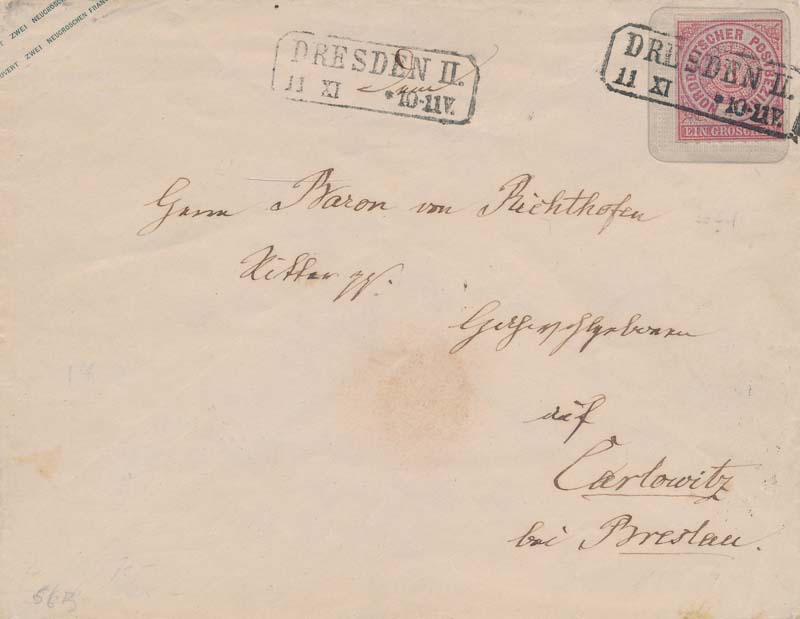 OVERT ZWEI NEUGROSCHEN FRAN
DRESDEN II.
11 XI *10-11V.
NORDDEUTSCHER POSTBEZIRK
EIN GROSCHEN
DRESDEN II.
11 XI *10-11V.
Herrn Baron von Richthofen
Ritter pp.
Hochwohlgeboren
auf
Carlowitz
bei Breslau.